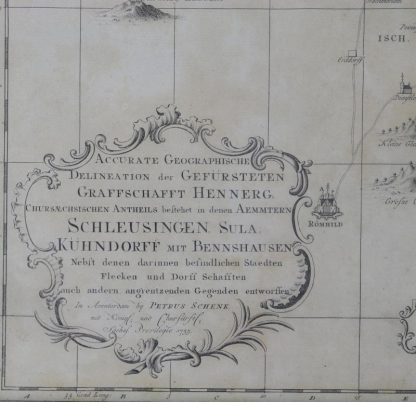 ISCH.
Römhild
Accurate Geographische
Delineation der Gefürsteten
Graffschafft Hennerg.
Chursæchsischen Antheils bestehet in denen Aemmtern
Schleusingen Sula.
Kühndorff mit Bennshausen
Nebst denen darinnen befindlichen Staedten
Flecken und Dorff Schafften
auch andern angrentzenden Gegenden entworffen
In Amsterdam by Petrus Schenk
mit Königl. und Churfürstl.
Sächss. Previlegie 1755.
A B C D E